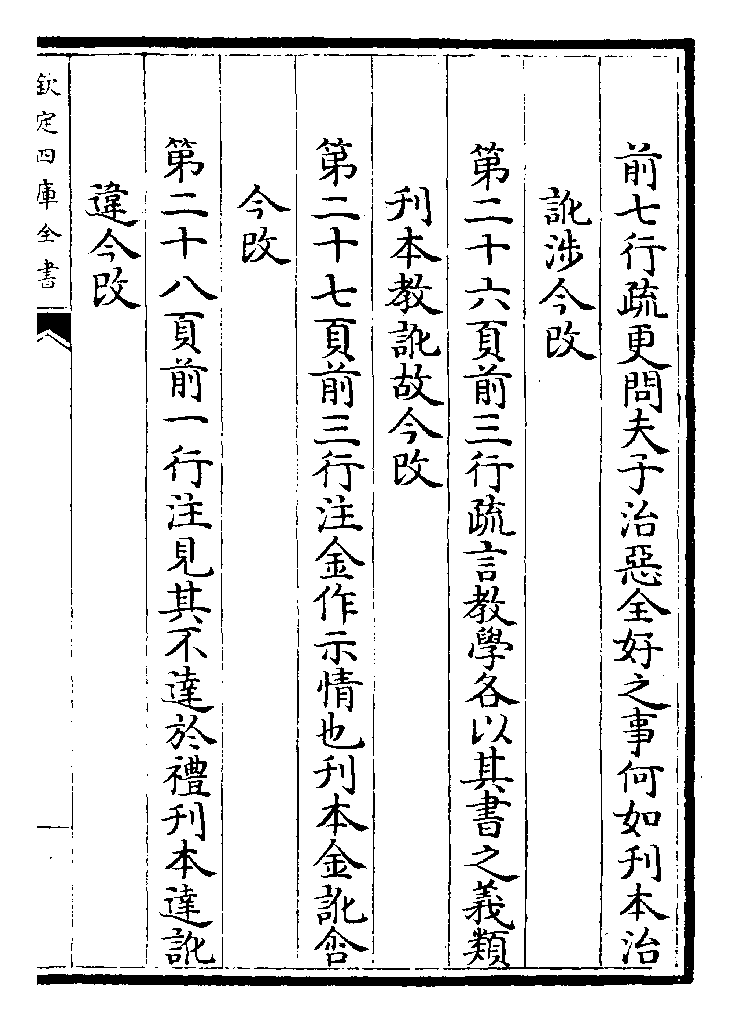 前七行疏更問夫子治惡全好之事何如刊本治
訛涉今改
第二十六頁前三行疏言教學各以其書之義類
刊本教訛故今改
第二十七頁前三行注金作示情也刊本金訛含
今改
第二十八頁前一行注見其不達於禮刊本達訛
違今改
欽定四庫全書